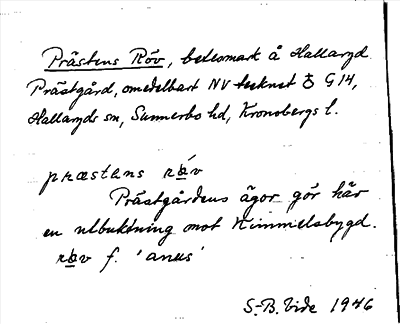 Prästens Röv, betesmark å Hallaryd
Prästgård, omedelbart NV tecknet ♁ G 14,
Hallaryds sn, Sunnerbo hd, Kronobergs l.
præstens röv
Prästgårdens ägor gör här
en utbuktning mot Himmelsbygd.
röv f. 'anus'
S.-B. Vide 1946